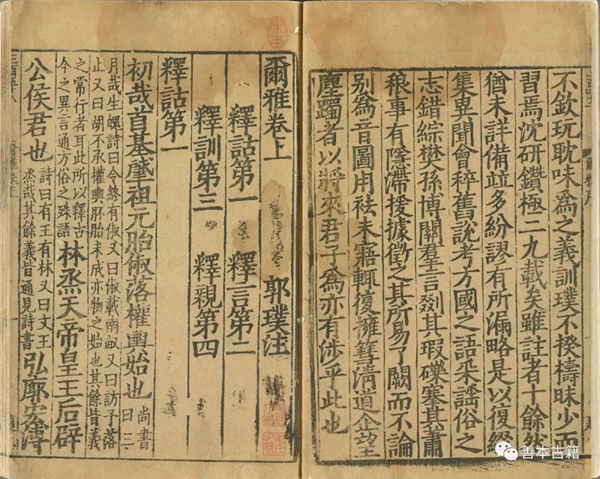 不欽玩耽味為之義訓璞不揆檮昧少而
習焉沈研鑽極二九載矣雖註者十餘然
猶未詳備並多紛謬有所漏略是以復綴
集異聞會稡舊說考方國之語采謠俗之
志錯綜樊孫博關羣言剟其瑕礫搴其蕭
稂事有隱滯援據徵之其所易了闕而不論
別為音圖用祛未寤輒復擁篲清道企望
塵躅者以將來君子為亦有涉乎此也
爾雅卷上 郭璞注
釋詁第一 釋言第二
釋訓第三 釋親第四
釋詁第一
初哉首基肇祖元胎俶落權輿始也 尚書曰三
月哉生魄詩曰令終有俶又曰俶載南畝又曰訪予落
止又曰胡不承權輿胚胎未成亦物之始也其餘皆義
之常行者耳此所以釋古今之異言通方俗之殊語 林烝天帝皇王后辟
公侯君也 詩曰有壬有林又曰文王烝哉其餘義皆通見詩書 弘廓宏溥
善本古籍